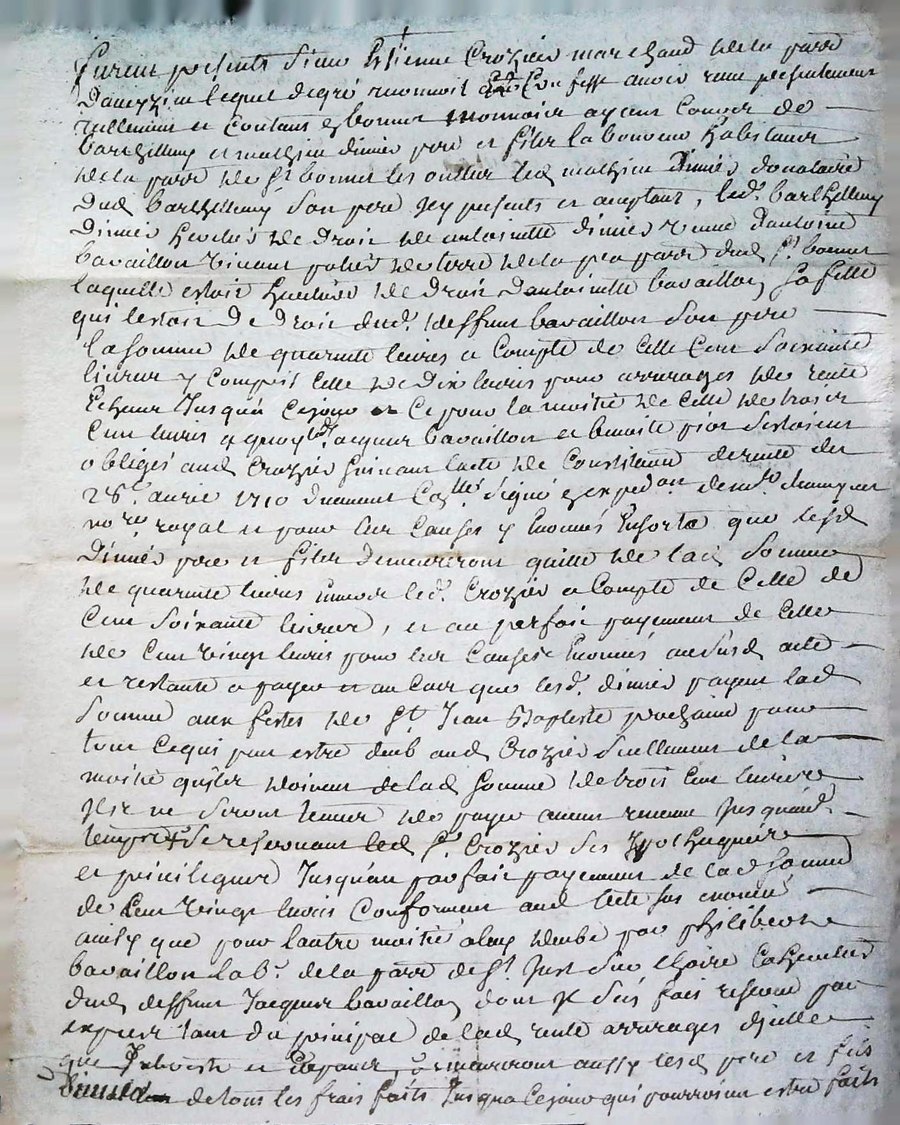 furent présents sieur Estienne Crozier marchand de la parr
Daveyzieu lequel de gré reconnoit et Confesse avoir reçu présentement
reellement et Contant en bonne monnoie ayant Cours de
barthellemy et mathieu dimier pere et fils laboureurs habitants
de la parr de St bonnet les oulles led mathieu dimier donataire
Dud barthellemy son pere icy présents et acceptant, led. barthellemy
Dimier héritier de droit de antoinette dimier veuve d'antoine
bavaillon vivant de la parr dud St bonnet
laquelle estoit héritière de droit d'antoinette bavaillon sa fille
qui lestoit de droit dud. deffunt bavaillon son pere
la somme de quarante livres a Compte de Celle Cent Soixante
livres y Compris Celle de Dix livres pour arrerages de rente
Echeus Jusqu'a Cejour et Ce pour la moitié de Celle de trois
Cent livres a quoy led Jacques bavaillon et benoite s'estoient
obligés aud Crozier suivant lacte de Constitution de rente du
28e. avril 1710 signé expedion de me
nore royal et pour les Causes y Enoncés Ensorte que lesd
Dimier pere et fils demeureront quitte de lad somme
de quarante livres envers led. Crozier a Compte de Celle de
Cent Soixante livres, et au parfait payement de Celle
de Cent vingt livres pour les Causes Enoncés aud acte
et restante a payer et au Cas que lesd. dimier payent lad
Somme aux festes de St Jean Baptiste prochaine pour
tout Cequi peut estre deub aud Crozier seullement de la
moitié quils doivent de lad somme de trois Cent livres
Ils ne seront tenus de payer aucun revenu Jusqu'aud.
temps se reservant led Sr. Crozier ses Ypotheques
et privileges Jusqu'au parfait payement de lad somme
de Cent vingt livres Conforment aud acte sus enoncé
ainsy que pour lautre moitié a luy deube par philiberte
bavaillon lab. de la parr de St. Just
dud deffunt Jacques bavaillon dont il s'est fait reserve par
expres tant du principal de lad rente arrerages
que et depans, demeureront aussy lesd pere et fils
de tous les frais faits Jusqua Cejour qui pourroient estre faits